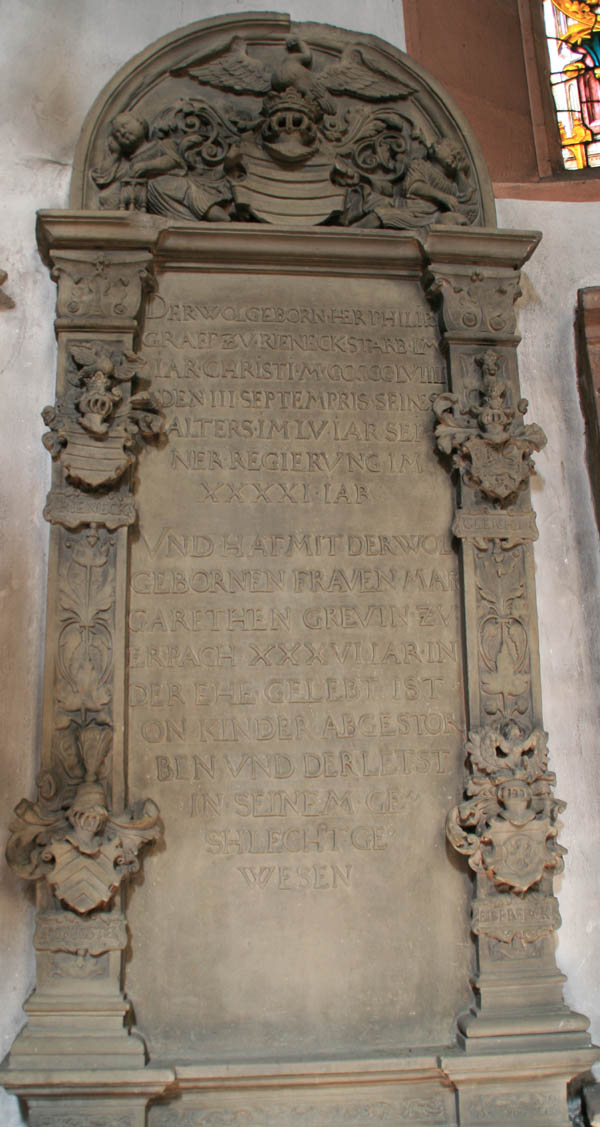 DER WOLGEBORN HER PHILIPS
GRAFF ZV RIENECK STARB IM
IAR CHRISTI M CCCCCLVIIII
DEN III SEPTEMPRIS SEINS
ALTERS IM LVI IAR SEI
NER REGIERVNG IM
XXXXI IAR
VND HAT MIT DER WOL
GEBORNEN FRAVEN MAR
GARETHEN GREVIN ZV
ERPACH XXXVI IAR IN
DER EHE GELEBT IST
ON KINDER ABGESTOR
BEN VND DER LETST
IN SEINEM GE
SHLECHT GE
WESEN
RIENECK